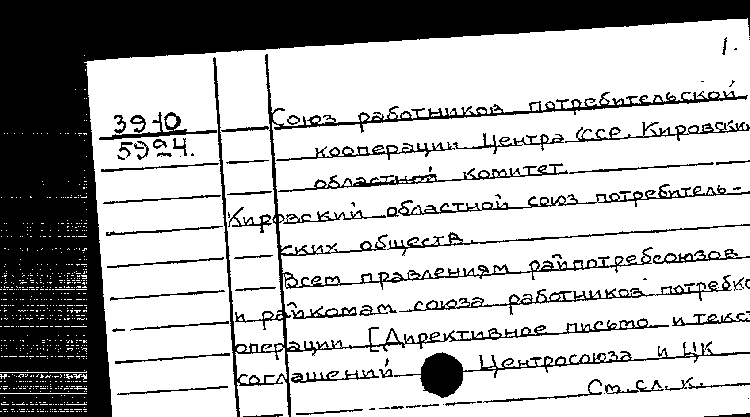 1.
39-10
5924.
Союз работников потребительской
кооперации Центра ССР. Кировский
областной комитет.
Кировский областной союз потребитель-
ских обществ.
Всем правлениям райпотребсоюзов
и райкомам союза работников потребко
операции. [Директивное письмо и текст
соглашений Центросоюза и ЦК
См. сл. к.